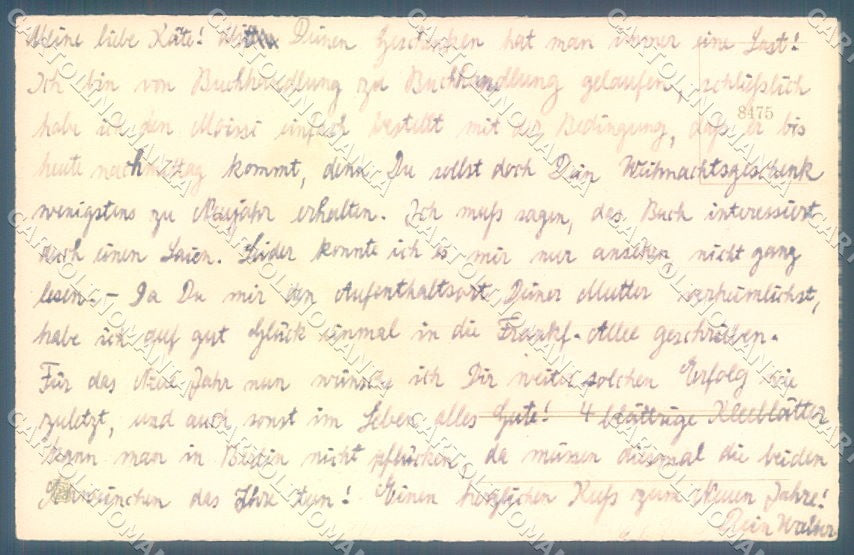 Meine liebe Käte! Mit Deinen Geschenken hat man immer eine Last!
Ich bin von Buchhandlung zu Buchhandlung gelaufen, schließlich
8475
habe ich den Moissi einfach bestellt mit der Bedingung, daß er bis
heute nachmittag kommt, denn Du sollst doch Dein Weihnachtsgeschenk
wenigstens zu Neujahr erhalten. Ich muß sagen, das Buch interessiert
auch einen Laien. Leider konnte ich es mir nur ansehen nicht ganz
lesen. – Da Du mir den Aufenthaltsort Deiner Mutter verheimlichst,
habe ich auf gut Glück einmal in die Frankf. Allee geschrieben.
Für das Neue Jahr nun wünsche ich Dir weiter solchen Erfolg wie
zuletzt, und auch sonst im Leben alles Gute! 4 blättrige Kleeblätter
kann man in Berlin nicht pflücken, da müssen diesmal die beiden
das Ihre tun! Einen herzlichen Kuß zum Neuen Jahre!
Dein Walter
CARTOLINOMANIA